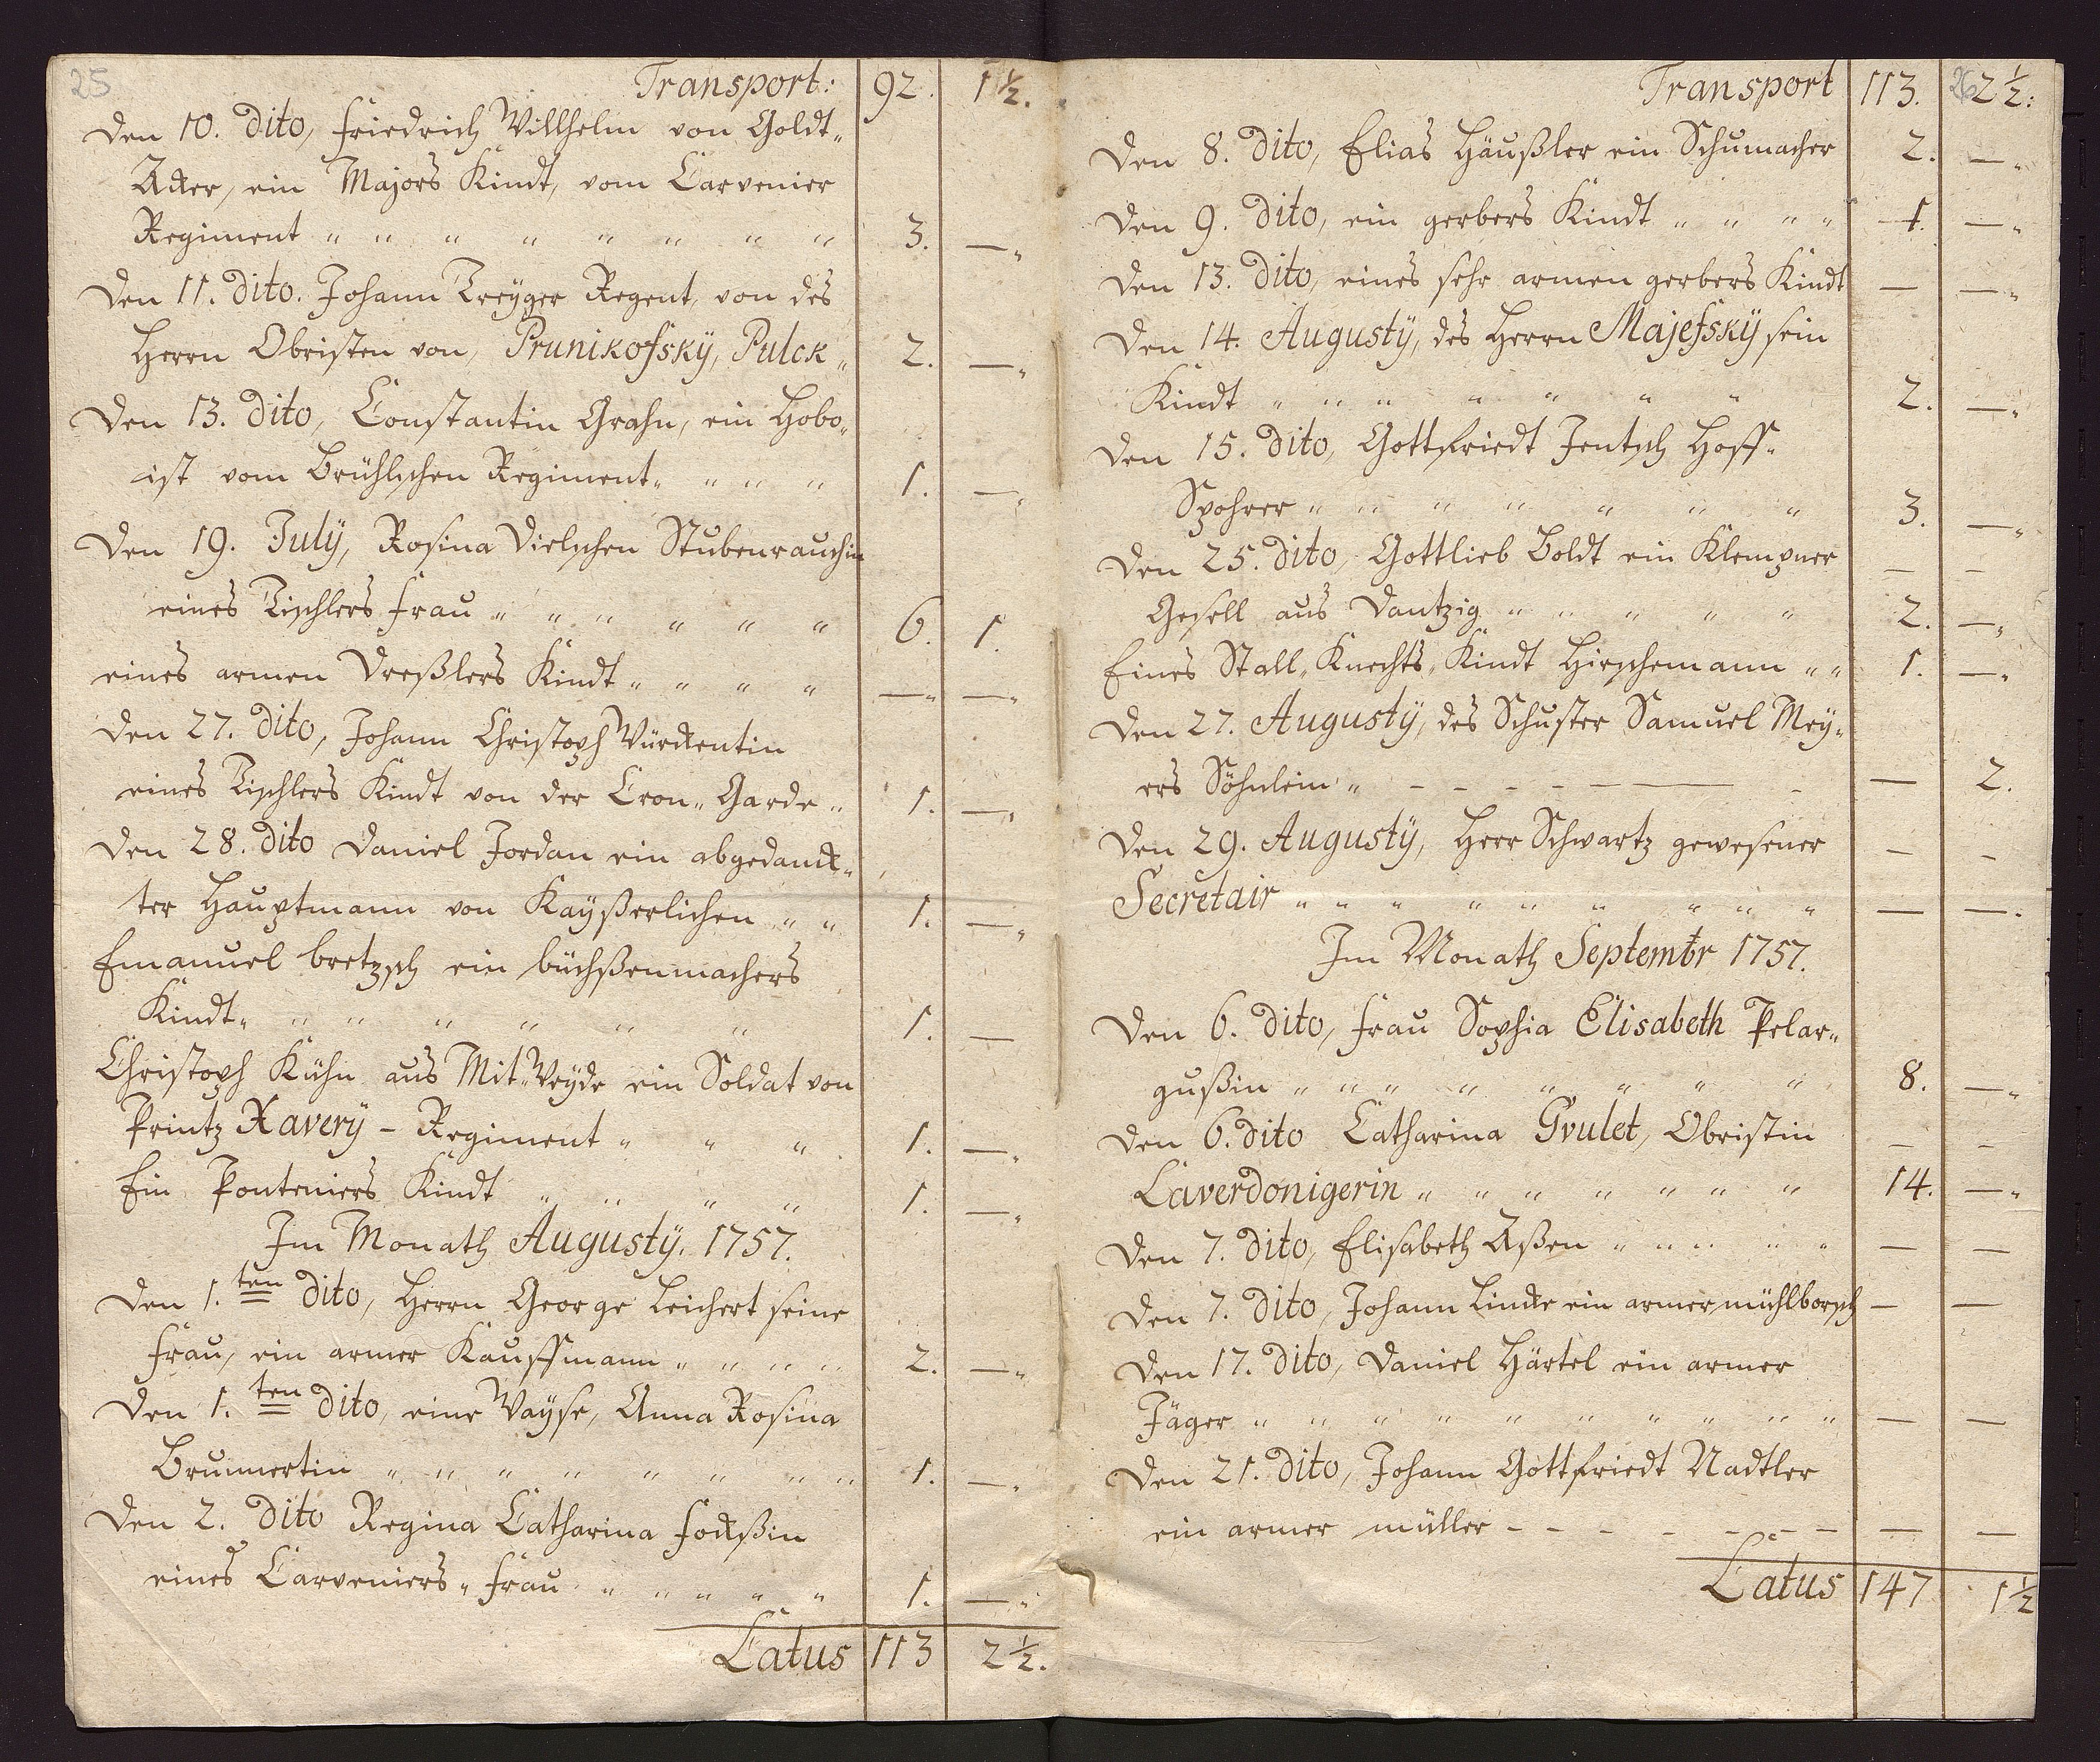 25
Transport: 92. 1½.
Den 10. dito, Friedrich Willhelm von Goldt„
Acker, ein Majors Kindt, vom Carvenier
Regiment „ „ „ „ „ „ „ „ 3. —„
Den 11. dito. Johann Treÿger Regent, von des
Herrn Obristen von, Prunikofskÿ, Pulck„ 2. —„
Den 13. dito, Constantin Grahn, ein Hobo„
ist vom Brühlschen Regiment„ „ „ „ 1. —„
Den 19. Julÿ, Rosina Dielschen Stubenrauchin
eines Tischlers Frau „ „ „ „ „ „ 6. 1.
eines armen Dreßlers Kindt „ „ „ „ —„ —„
Den 27. dito, Johann Christoph Würckentin
eines Tischlers Kindt von der Cron„ Garde „ 1. —„
Den 28. dito Daniel Jordan ein abgedanck„
ter Hauptmann von Kaÿßerlichen „ „ 1. —„
Emanuel bretzsch ein büchßenmachers
Kindt„ „ „ „ „ „ „ 1. —
Christoph Kühn aus Mit„Weÿde ein Soldat von
Printz Xaverÿ - Regiment „ „ „ 1. —„
Ein Ponteniers Kindt „ „ „ „ 1. —„
Im Monath Augustÿ. 1757.
Den 1.ten dito, Herrn George Leichert seine
Frau, ein armer Kauffmann „ „ „ „ 2. —„
Den 1.ten dito, eine Waÿse, Anna Rosina
Brunnertin „ „ „ „ „ „ „ „ 1. —„
Den 2. dito Regina Catharina Fockßin
eines Carveniers„ Frau „ „ „ „ „ 1. —„
Latus 113 2½.
26
Transport 113. 2½:
Den 8. dito, Elias Häußler ein Schumacher 2. —„
Den 9. dito, ein gerbers Kindt „ „ „ „ 1. —„
Den 13. dito, eines sehr armen gerbers Kindt — —„
Den 14. Augustÿ, des Herrn Majefskÿ sein
Kindt „ „ „ „ „ „ „ 2. —„
Den 15. dito, Gottfriedt Jentsch Hoff„
Spohrer „ „ „ „ „ „ „ 3. —„
Den 25. dito, Gottlieb Boldt ein Klempner — —
Gesell aus Dantzig „ „ „ „ „ 2. —„
Eines Stall„ Knechts„ Kindt Hirschemann „ „ 1. —„
Den 27. Augustÿ, des Schuster Samuel Meÿ„
ers Söhnlein „ - - - - - — - — 2.
Den 29. Augustÿ, Herr Schwartz gewesener — -
Secretair „ „ „ „ „ „ „ „ „ — —.
Im Monath Septembr 1757.
Den 6. dito, Frau Sophia Elisabeth Pelar„
gußin „ „ „ „ „ „ „ „ 8. —„
Den 6. dito Catharina Gvulet, Obristin — —
Laverdonigerin „ „ „ „ „ „ „ 14. —„
Den 7. dito, Elisabeth Aßen „ „ „ „ „ — —
Den 7. dito, Johann Lincke ein armer mühlborsch — —
Den 17. dito, Daniel Härtel ein armer
Jäger „ „ „ „ „ „ „ „ „ „ — —
Den 21. dito, Johann Gottfriedt Nadtler
ein armer müller - - - - - - - — —
Latus 147 1½